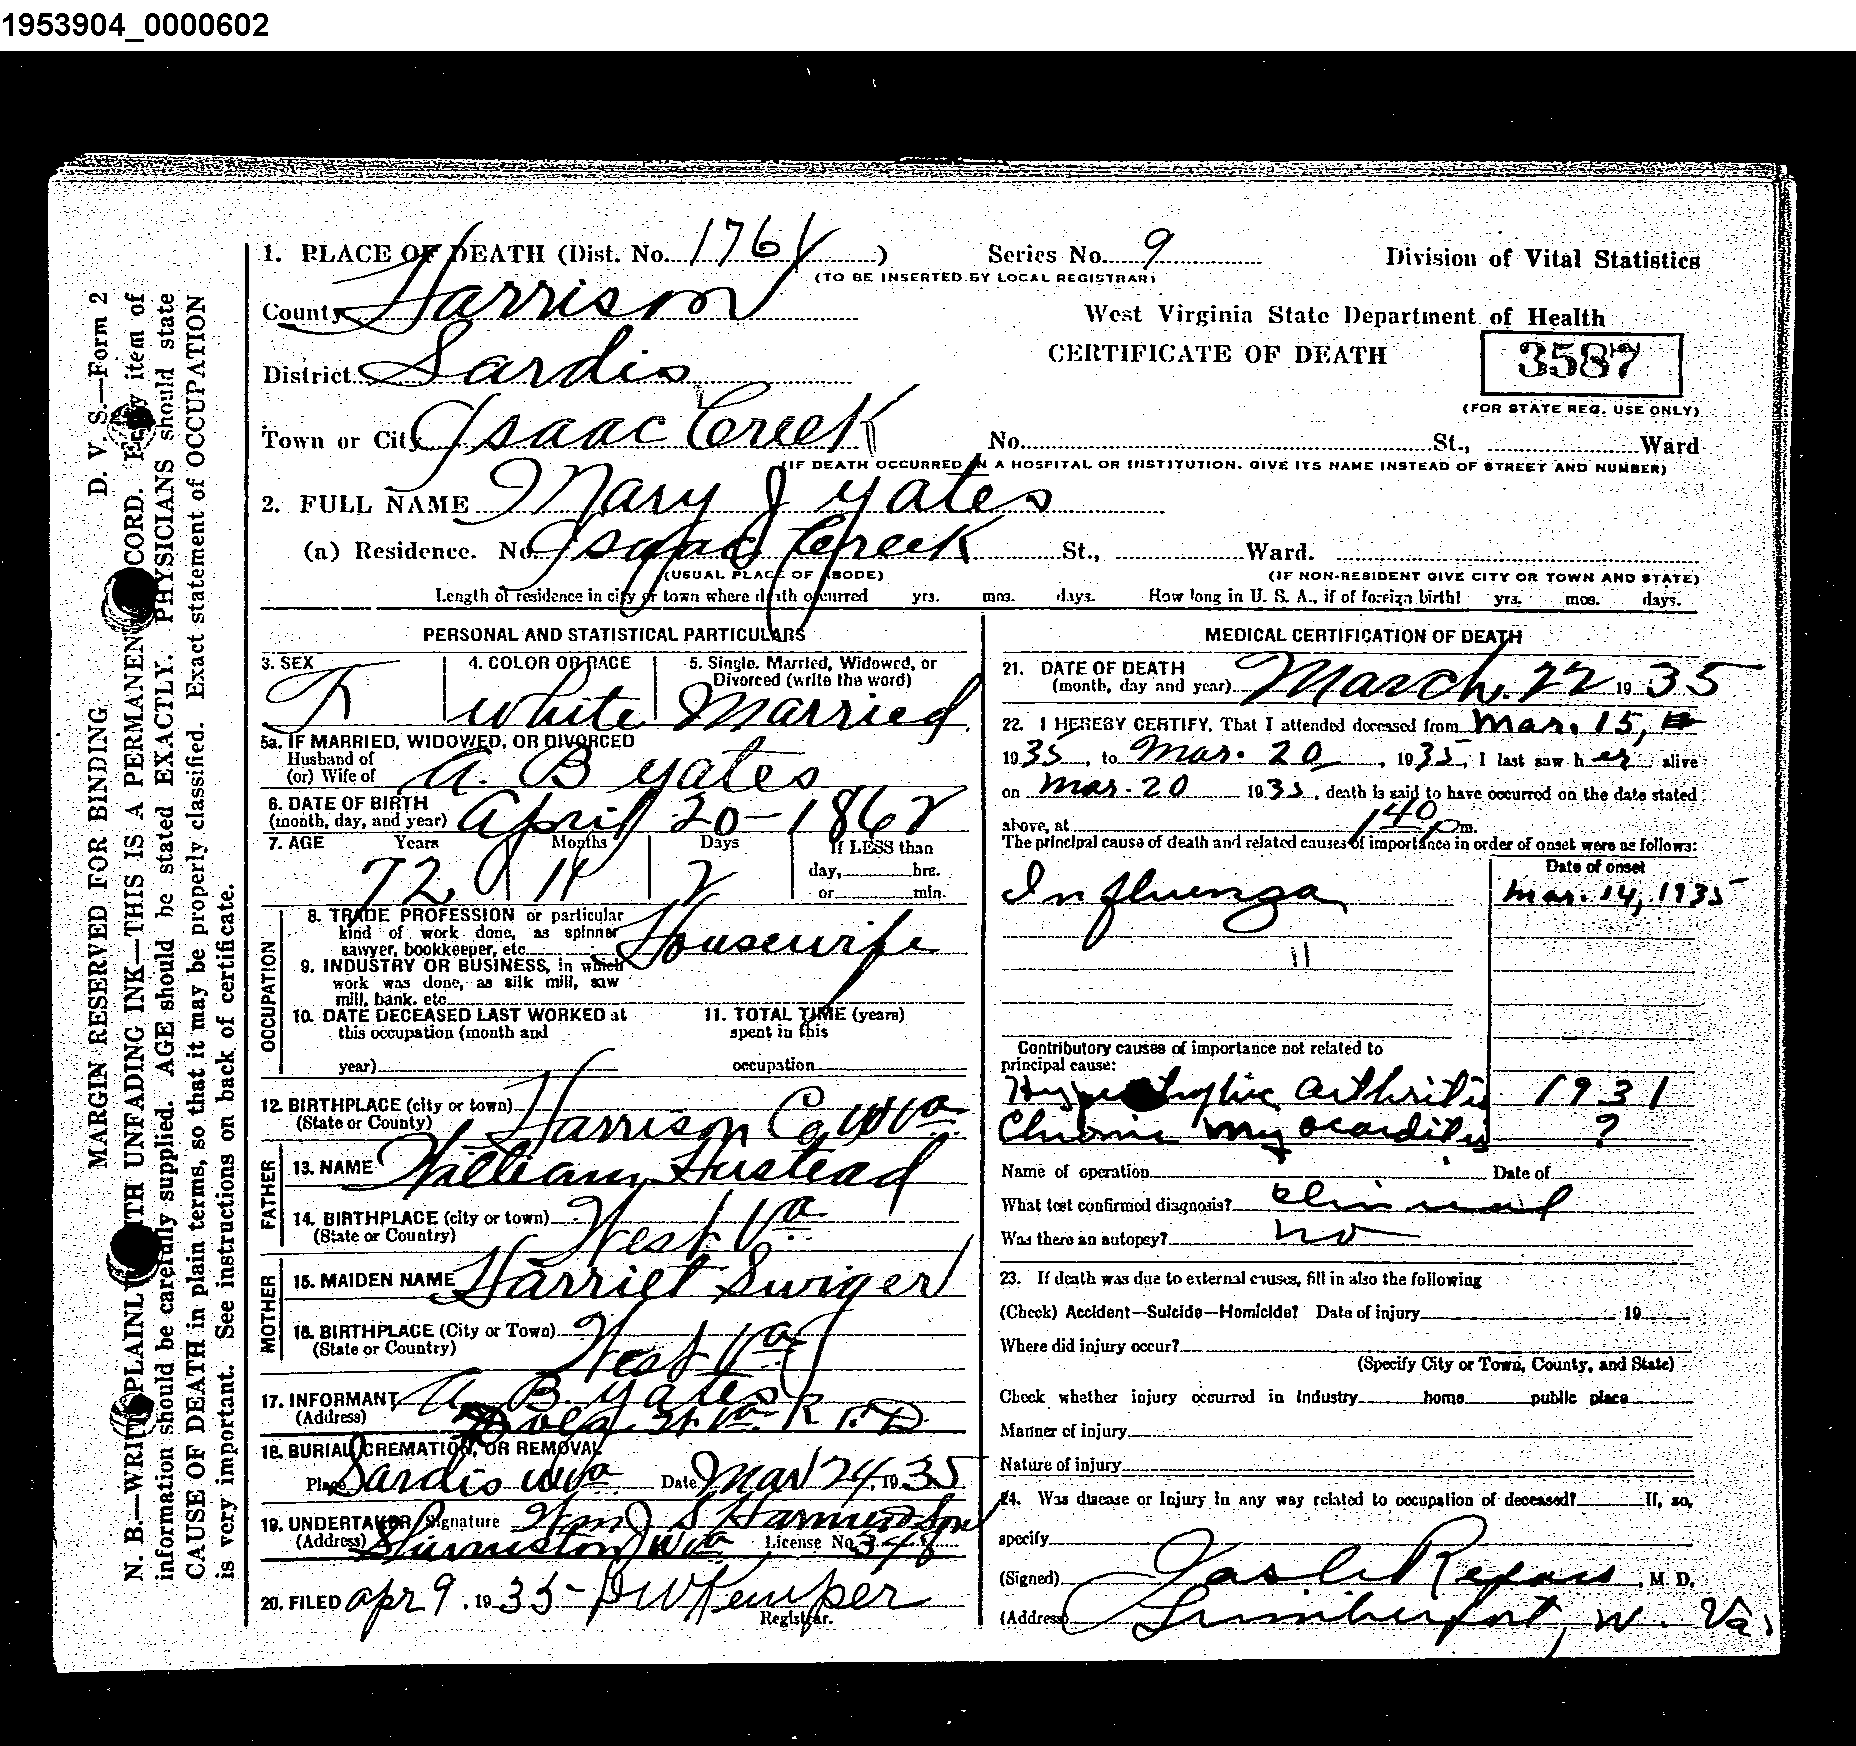 1953904_0000602
1. PLACE OF DEATH (Dist. No. 1764) Series No. 9 Division of Vital Statistics
(TO BE INSERTED BY LOCAL REGISTRAR)
County Harrison West Virginia State Department of Health
CERTIFICATE OF DEATH 3587
District Sardis
(FOR STATE REG. USE ONLY)
Town or City Isaac Creek No. St., Ward
(IF DEATH OCCURRED IN A HOSPITAL OR INSTITUTION, GIVE ITS NAME INSTEAD OF STREET AND NUMBER)
2. FULL NAME Mary J Yates
(a) Residence. No. Isaac Creek St., Ward.
(USUAL PLACE OF ABODE) (IF NON-RESIDENT GIVE CITY OR TOWN AND STATE)
Length of residence in city or town where death occurred yrs. mos. days. How long in U. S. A., if of foreign birth? yrs. mos. days.
PERSONAL AND STATISTICAL PARTICULARS
3. SEX 4. COLOR OR RACE 5. Single, Married, Widowed, or
Divorced (write the word)
F White Married
5a. IF MARRIED, WIDOWED, OR DIVORCED
Husband of
(or) Wife of A. B Yates
6. DATE OF BIRTH
(month, day, and year) April 20-1862
7. AGE Years Months Days If LESS than
72 11 2 day, hrs.
or min.
OCCUPATION
8. TRADE PROFESSION or particular
kind of work done, as spinner
sawyer, bookkeeper, etc. Housewife
9. INDUSTRY OR BUSINESS, in which
work was done, as silk mill, saw
mill, bank. etc.
10. DATE DECEASED LAST WORKED at 11. TOTAL TIME (years)
this occupation (month and spent in this
year) occupation
12. BIRTHPLACE (city or town)
(State or Country) Harrison Co WVa
FATHER
13. NAME William Hustead
14. BIRTHPLACE (city or town)
(State or Country) West Va
MOTHER
15. MAIDEN NAME Harriet Swiger
16. BIRTHPLACE (City or Town)
(State or Country) West Va
17. INFORMANT A. B. Yates
(Address) Dola W. Va R F D
18. BURIAL, CREMATION, OR REMOVAL
Place Sardis WVa Date Mar 24 1935
19. UNDERTAKER Signature Wm J S Harmer Son
(Address) Shinnston WVa License No. 348
20. FILED Apr 9, 1935- Kemper
Registrar.
MEDICAL CERTIFICATION OF DEATH
21. DATE OF DEATH
(month, day and year) March. 22 1935
22. I HEREBY CERTIFY, That I attended deceased from Mar. 15,
1935, to Mar. 20, 1935, I last saw her alive
on Mar. 20 1935, death is said to have occurred on the date stated
above, at 1 40 Pm.
The principal cause of death and related causes of importance in order of onset were as follows:
Date of onset
Influenza Mar. 14, 1935
11
Contributory causes of importance not related to
principal cause:
Hypertrophic arthritis 1931
Chronic myocarditis ?
Name of operation Date of
What test confirmed diagnosis? clinical
Was there an autopsy? no
23. If death was due to external causes, fill in also the following
(Check) Accident—Suicide—Homicide? Date of injury 19
Where did injury occur?
(Specify City or Town, County, and State)
Check whether injury occurred in industry home public place
Manner of injury
Nature of injury
24. Was disease or Injury in any way related to occupation of deceased? If, so,
specify
(Signed) M. D.
(Address) Lumberport, W. Va.
D. V. S.—Form 2
MARGIN RESERVED FOR BINDING
N. B.—WRITE PLAINLY WITH UNFADING INK—THIS IS A PERMANENT RECORD. Every item of
information should be carefully supplied. AGE should be stated EXACTLY. PHYSICIANS should state
CAUSE OF DEATH in plain terms, so that it may be properly classified. Exact statement of OCCUPATION
is very important. See instructions on back of certificate.